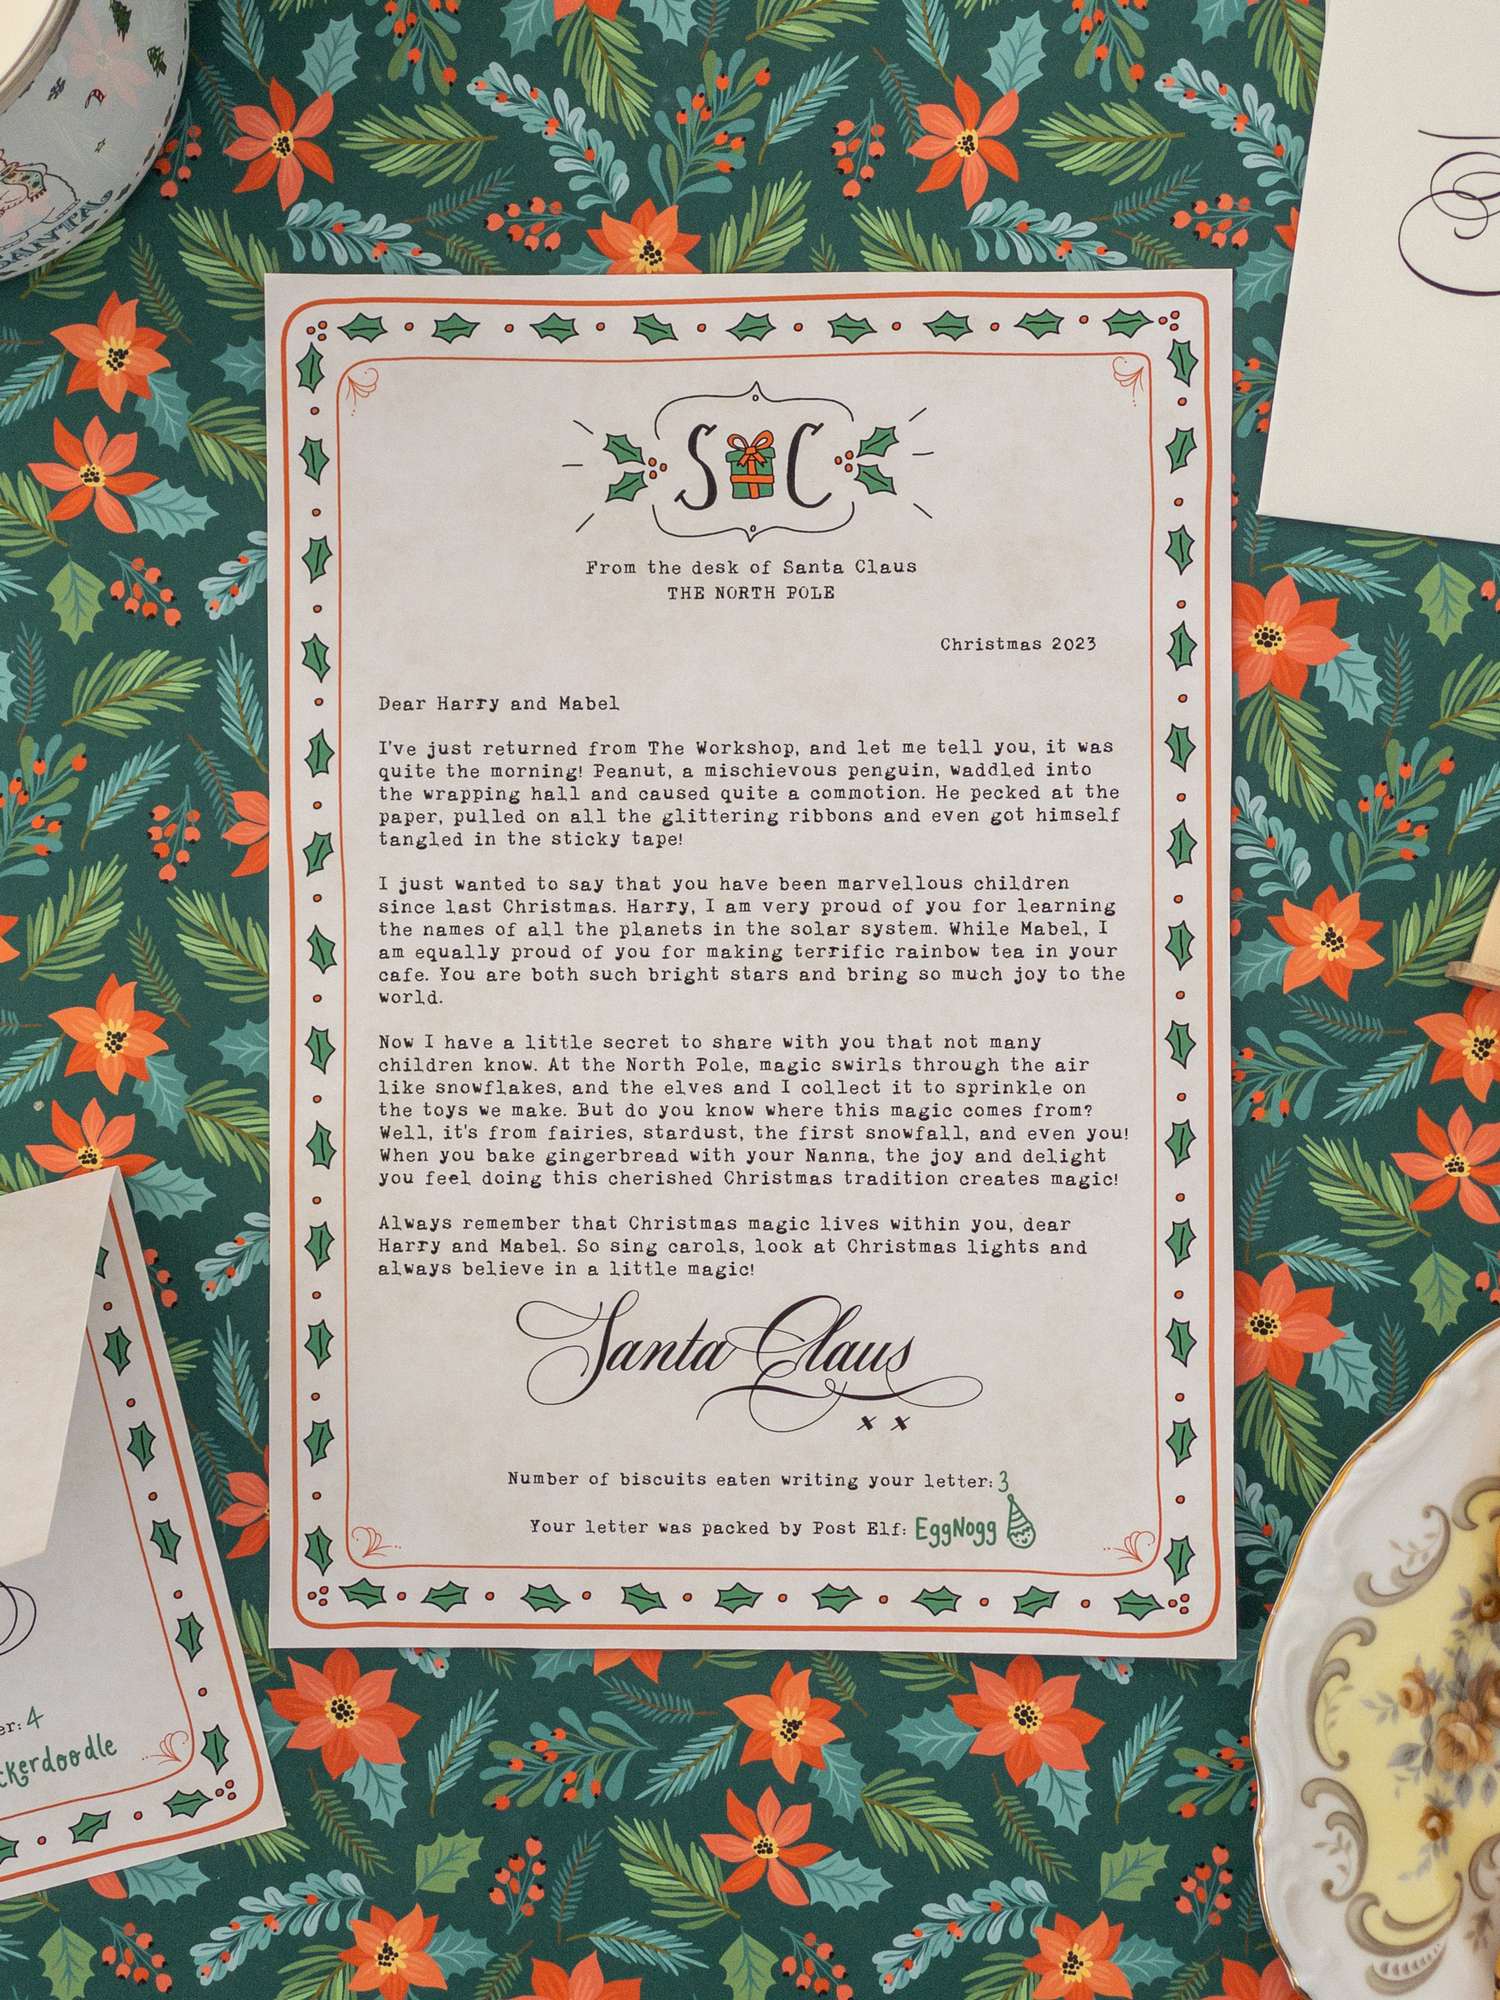 SANTA
S C
From the desk of Santa Claus
THE NORTH POLE
Christmas 2023
Dear Harry and Mabel
I've just returned from The Workshop, and let me tell you, it was
quite the morning! Peanut, a mischievous penguin, waddled into
the wrapping hall and caused quite a commotion. He pecked at the
paper, pulled on all the glittering ribbons and even got himself
tangled in the sticky tape!
I just wanted to say that you have been marvellous children
since last Christmas. Harry, I am very proud of you for learning
the names of all the planets in the solar system. While Mabel, I
am equally proud of you for making terrific rainbow tea in your
cafe. You are both such bright stars and bring so much joy to the
world.
Now I have a little secret to share with you that not many
children know. At the North Pole, magic swirls through the air
like snowflakes, and the elves and I collect it to sprinkle on
the toys we make. But do you know where this magic comes from?
Well, it's from fairies, stardust, the first snowfall, and even you!
When you bake gingerbread with your Nanna, the joy and delight
you feel doing this cherished Christmas tradition creates magic!
Always remember that Christmas magic lives within you, dear
Harry and Mabel. So sing carols, look at Christmas lights and
always believe in a little magic!
Santa Claus
x x
Number of biscuits eaten writing your letter: 3
Your letter was packed by Post Elf: EggNogg
er: 4
ckerdoodle